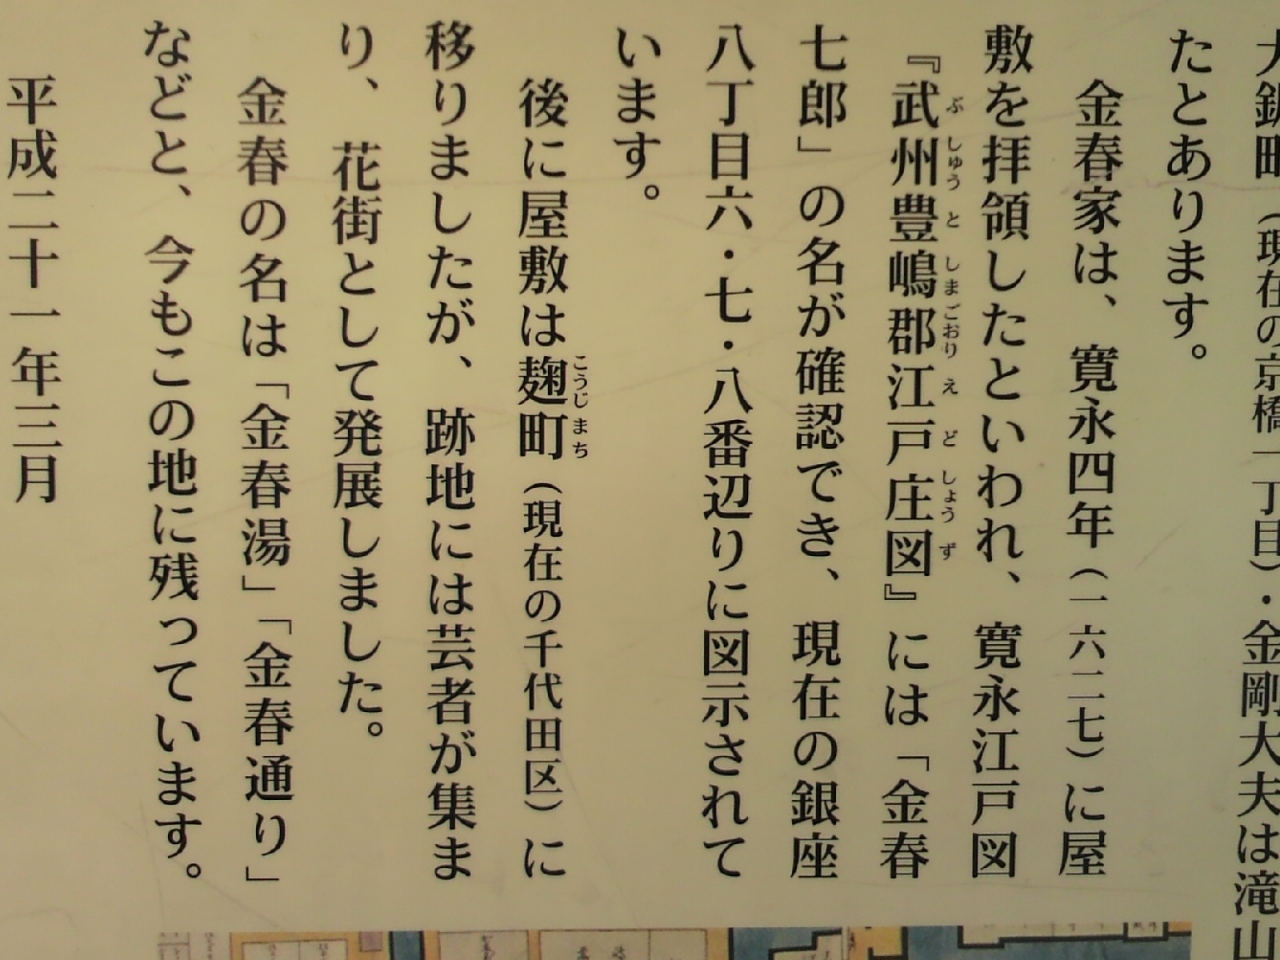 大鋸町（現在の京橋一丁目）・金剛大夫は滝山
たとあります。
金春家は、寛永四年（一六二七）に屋
敷を拝領したといわれ、寛永江戸図
『武州豊嶋郡江戸庄図』には「金春
七郎」の名が確認でき、現在の銀座
八丁目六・七・八番辺りに図示されて
います。
後に屋敷は麹町（現在の千代田区）に
移りましたが、跡地には芸者が集ま
り、花街として発展しました。
金春の名は「金春湯」「金春通り」
などと、今もこの地に残っています。
平成二十一年三月